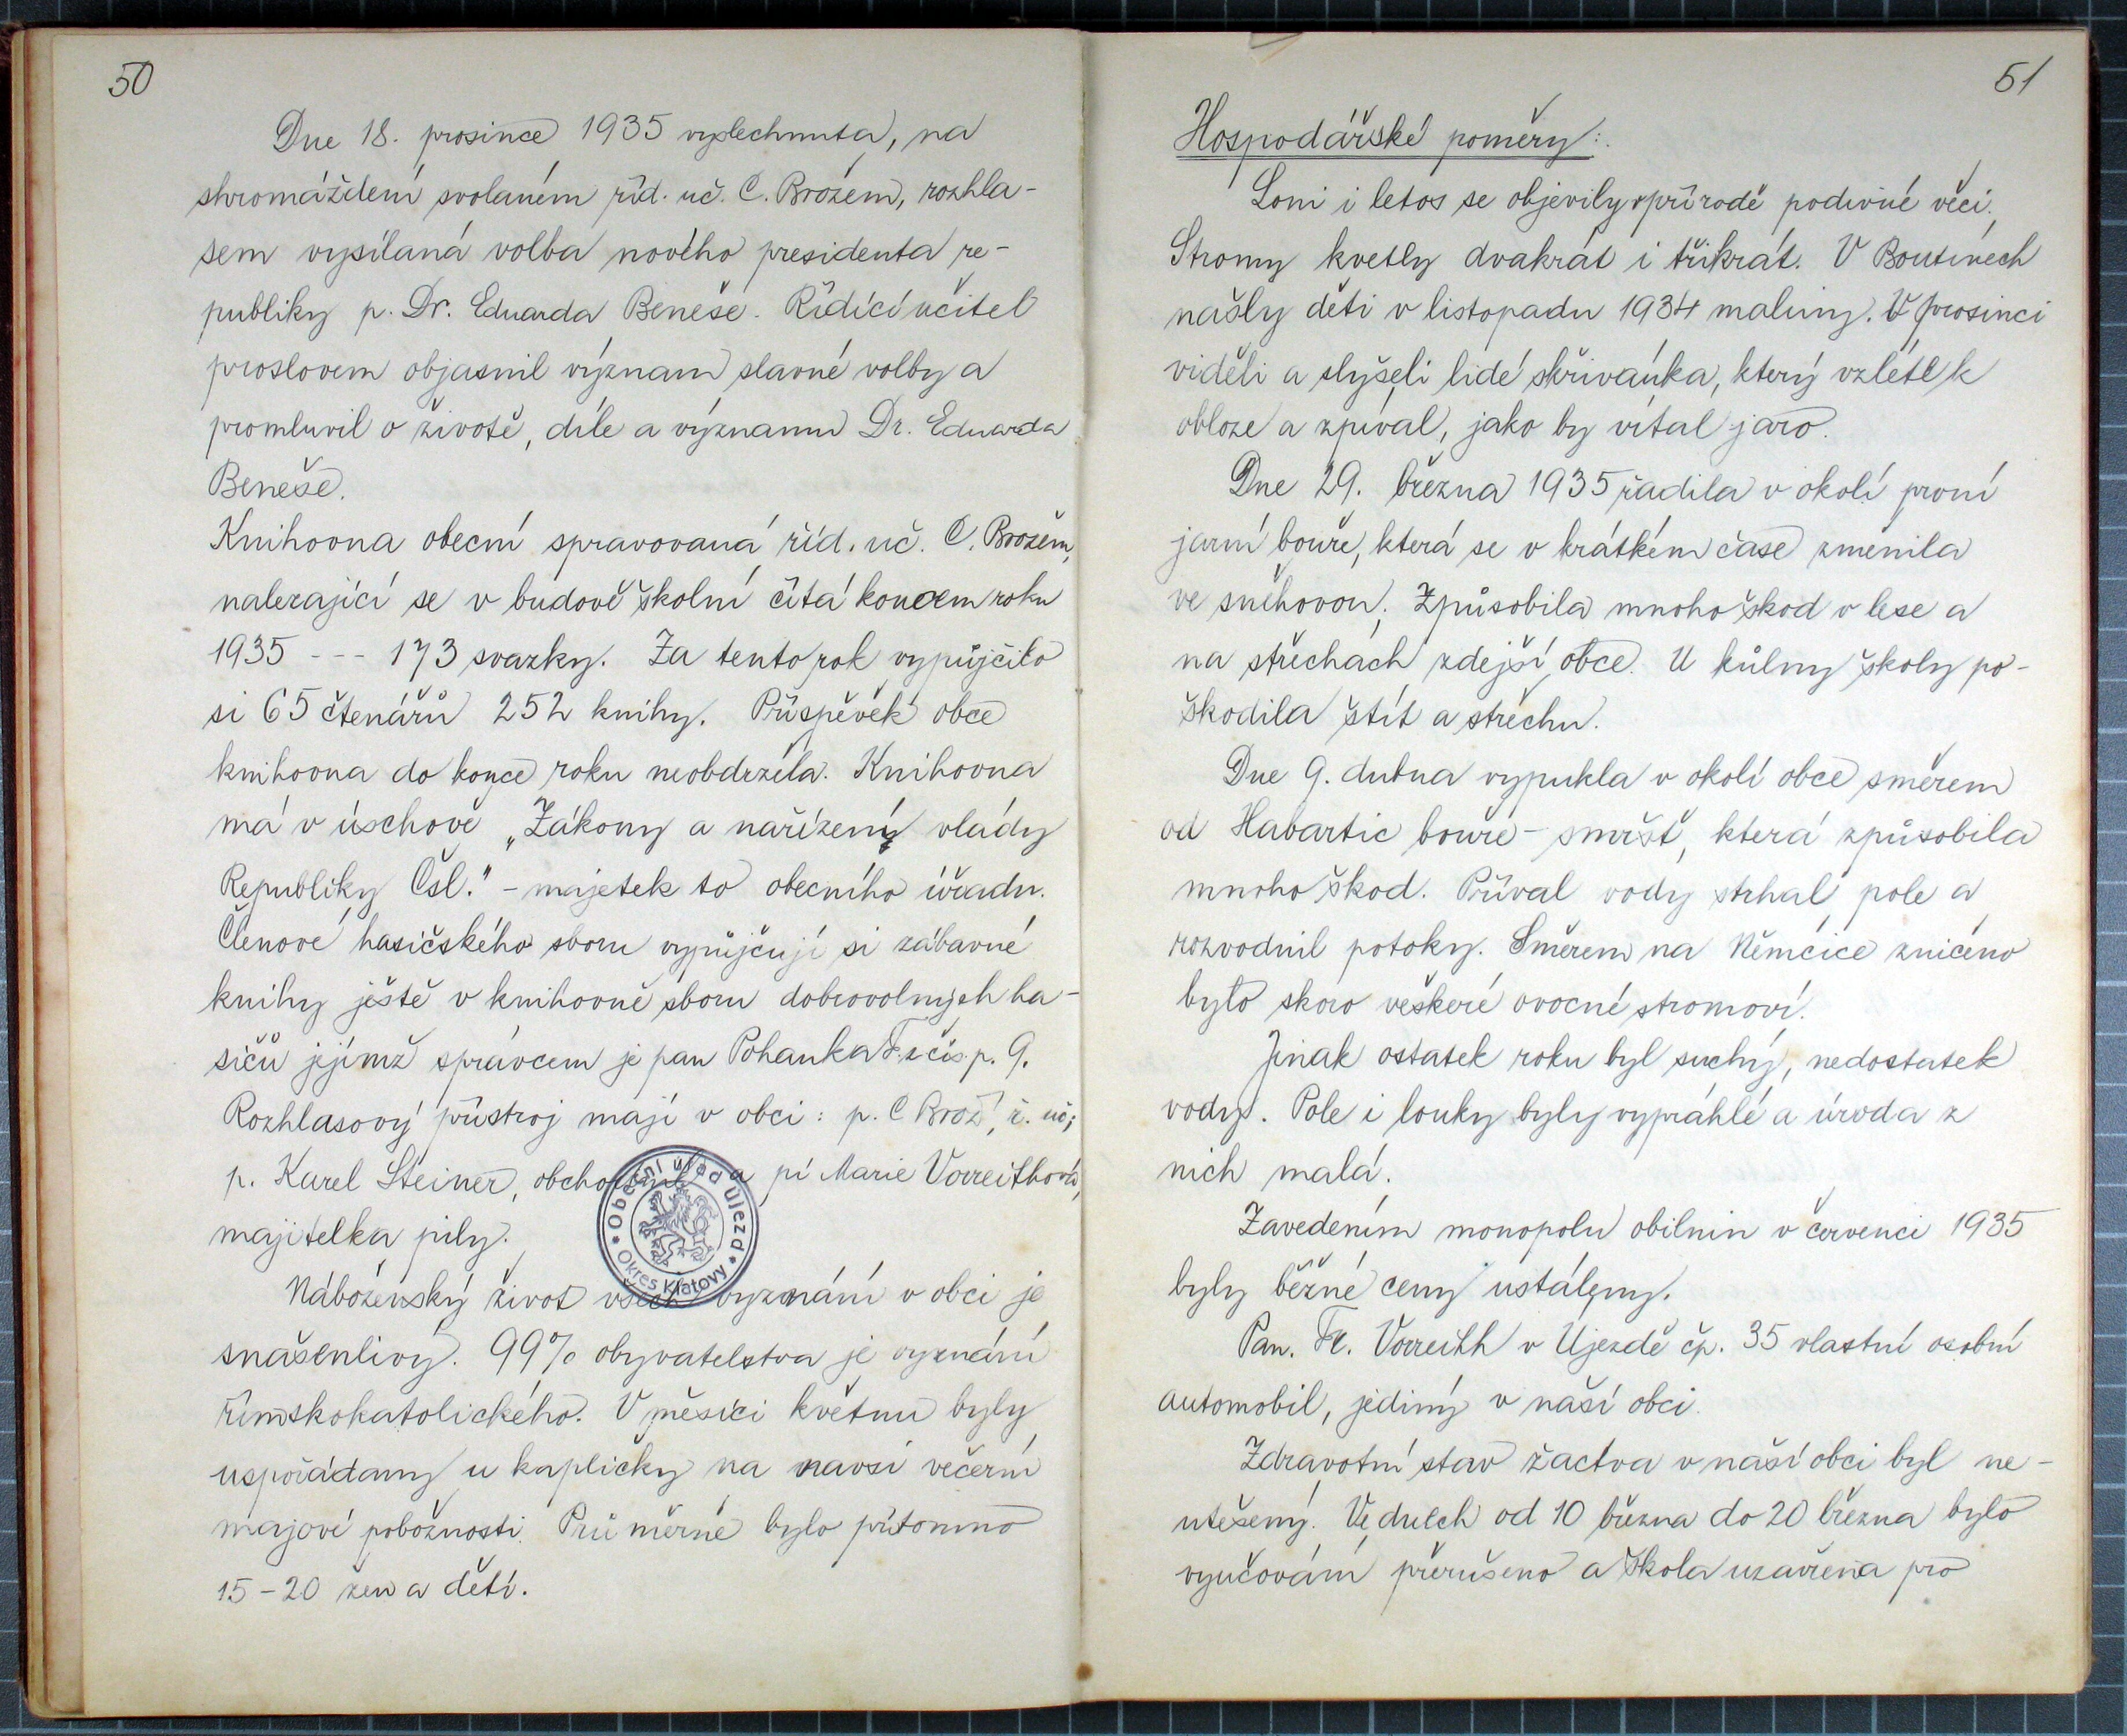 50
Dne 18. prosince 1935 vyslechnuta, na
shromáždění svolaném říd. uč. C. Brožem, rozhla-
sem vysílaná volba nového presidenta re-
publiky p. Dr. Eduarda Beneše. Řídící učitel
proslovem objasnil význam slavné volby a
promluvil o životě, díle a významu Dr. Eduarda
Beneše.
Knihovna obecní spravovaná říd. uč. C. Brožem,
nalezající se v budově školní čítá koncem roku
1935 --- 173 svazky. Za tento rok vypůjčilo
si 65 čtenářů 252 knihy. Příspěvek obce
knihovna do konce roku neobdržela. Knihovna
má v úschově „Zákony a nařízený vlády
Republiky Čsl." - majetek to obecního úřadu.
Členové hasičského sboru vypůjčují si zábavné
knihy ještě v knihovně sboru dobrovolných ha-
sičů jejímž správcem je pan Pohanka F. z čís. p. 9.
Rozhlasový přístroj mají v obci: p. C Brož, ř. uč;
p. Karel Steiner, obchodník a pí Marie Vorreithová,
majitelka pily.
Obecní úřad Újezd
Okres Klatovy
Náboženský život všech vyznání v obci je
snášenlivý. 99% obyvatelstva je vyznání
římskokatolického. V měsíci květnu byly
uspořádany u kapličky na navsi večerní
majové pobožnosti. Průměrně bylo přítomno
15-20 žen a dětí.
51
Hospodářské poměry:.
Loni i letos se objevily v přírodě podivné věci.
Stromy kvetly dvakrát i třikrát. V Boutinech
našly děti v listopadu 1934 maliny. V prosinci
viděli a slyšeli lidé skřivánka, který vzlétl k
obloze a zpíval, jako by vítal jaro.
Dne 29. března 1935 řadila v okolí první
jarní bouře, která se v krátkém čase změnila
ve sněhovou. Způsobila mnoho škod v lese a
na střechách zdejší obce. U kůlny školy po-
škodila štít a střechu.
Dne 9. dubna vypukla v okolí obce směrem
od Habartic bouře - smršť, která způsobila
mnoho škod. Příval vody strhal pole a
rozvodnil potoky. Směrem na Němčice zničeno
bylo skoro veškeré ovocné stromoví.
Jinak ostatek roku byl suchý, nedostatek
vody. Pole i louky byly vypráhlé a úroda z
nich malá.
Zavedením monopolu obilnin v červenci 1935
byly běžné ceny ustáleny.
Pan. Fr. Vorreith v Újezdě čp. 35 vlastní osobní
automobil, jediný v naší obci.
Zdravotní stav žactva v naší obci byl ne-
utěšený. Ve dnech od 10 března do 20 března bylo
vyučování přerušeno a škola uzavřena pro